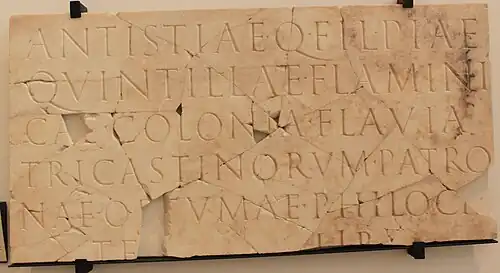 ANTISTIAE·Q·FIL·PIAE
QVINTILLAE·FLAMINI
CAE·COLONIA·FLAVIA
TRICASTINORVM·PATRO
NAE·O TVMAE·PHILOC
TE LIB